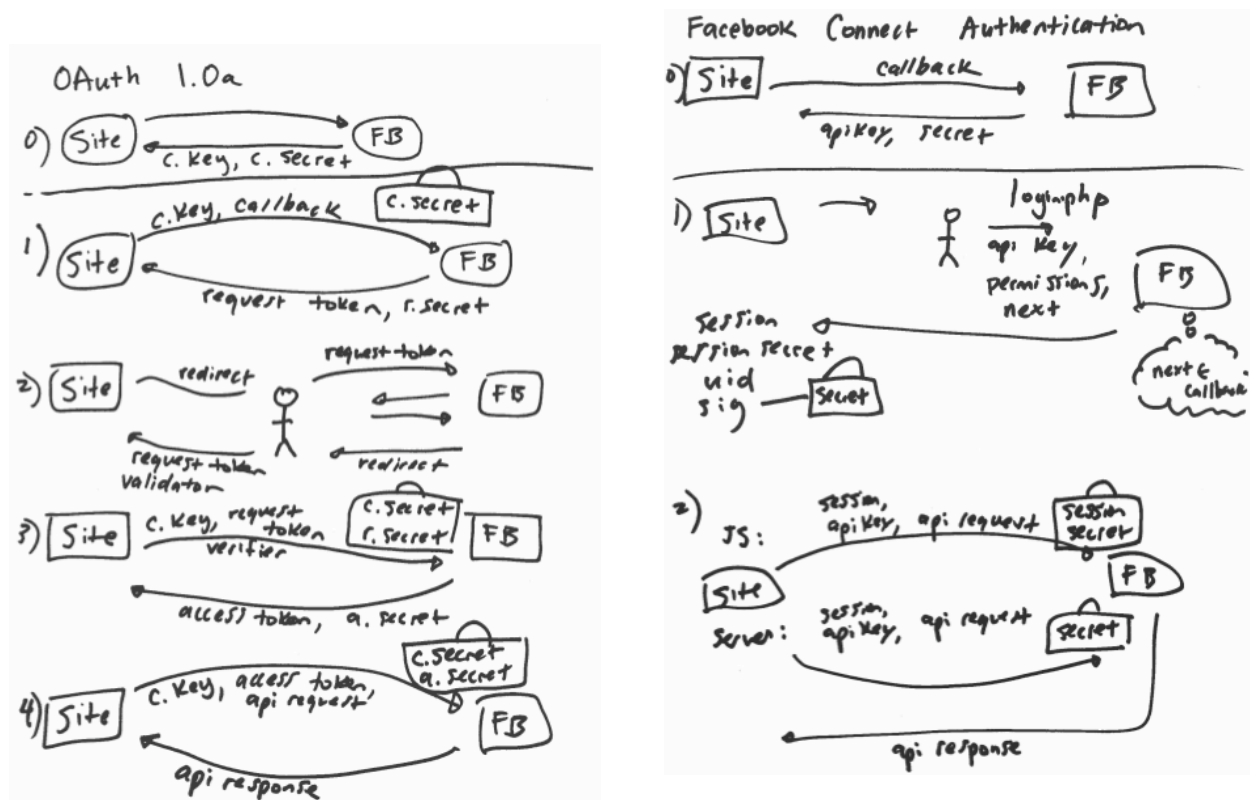 OAuth 1.0a
0) Site
FB
c. key, c. secret
c. key, callback
c. secret
1) Site
FB
request token, r. secret
request token
2) Site
redirect
FB
request token
validator
redirect
3) Site
c. key, request
token
verifier
c. secret
r. secret
FB
access token, a. secret
4) Site
c. key, access token,
api request
c. secret
a. secret
FB
api response
Facebook Connect Authentication
0) Site
callback
FB
api key, secret
1) Site
login.php
api key,
permissions,
next
FB
session
session secret
uid
sig
secret
next ∈
callback
2) JS:
session,
api key, api request
session
secret
Site
FB
Server:
session,
api key, api request
secret
api response